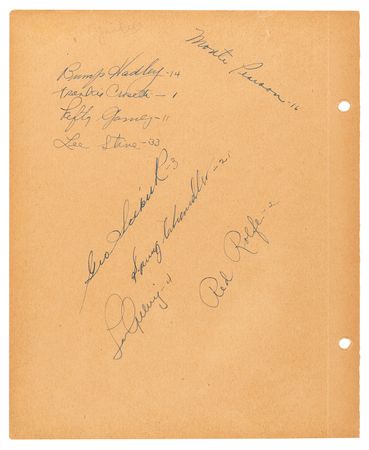 Monte Pearson-16
Bump Hadley-14
Frankie Crosetti-1
Lefty Gomez-11
Lee Stine-33
Geo Selkirk-3
Spud Chandler-21
Lou Gehrig-4
Red Rolfe-2